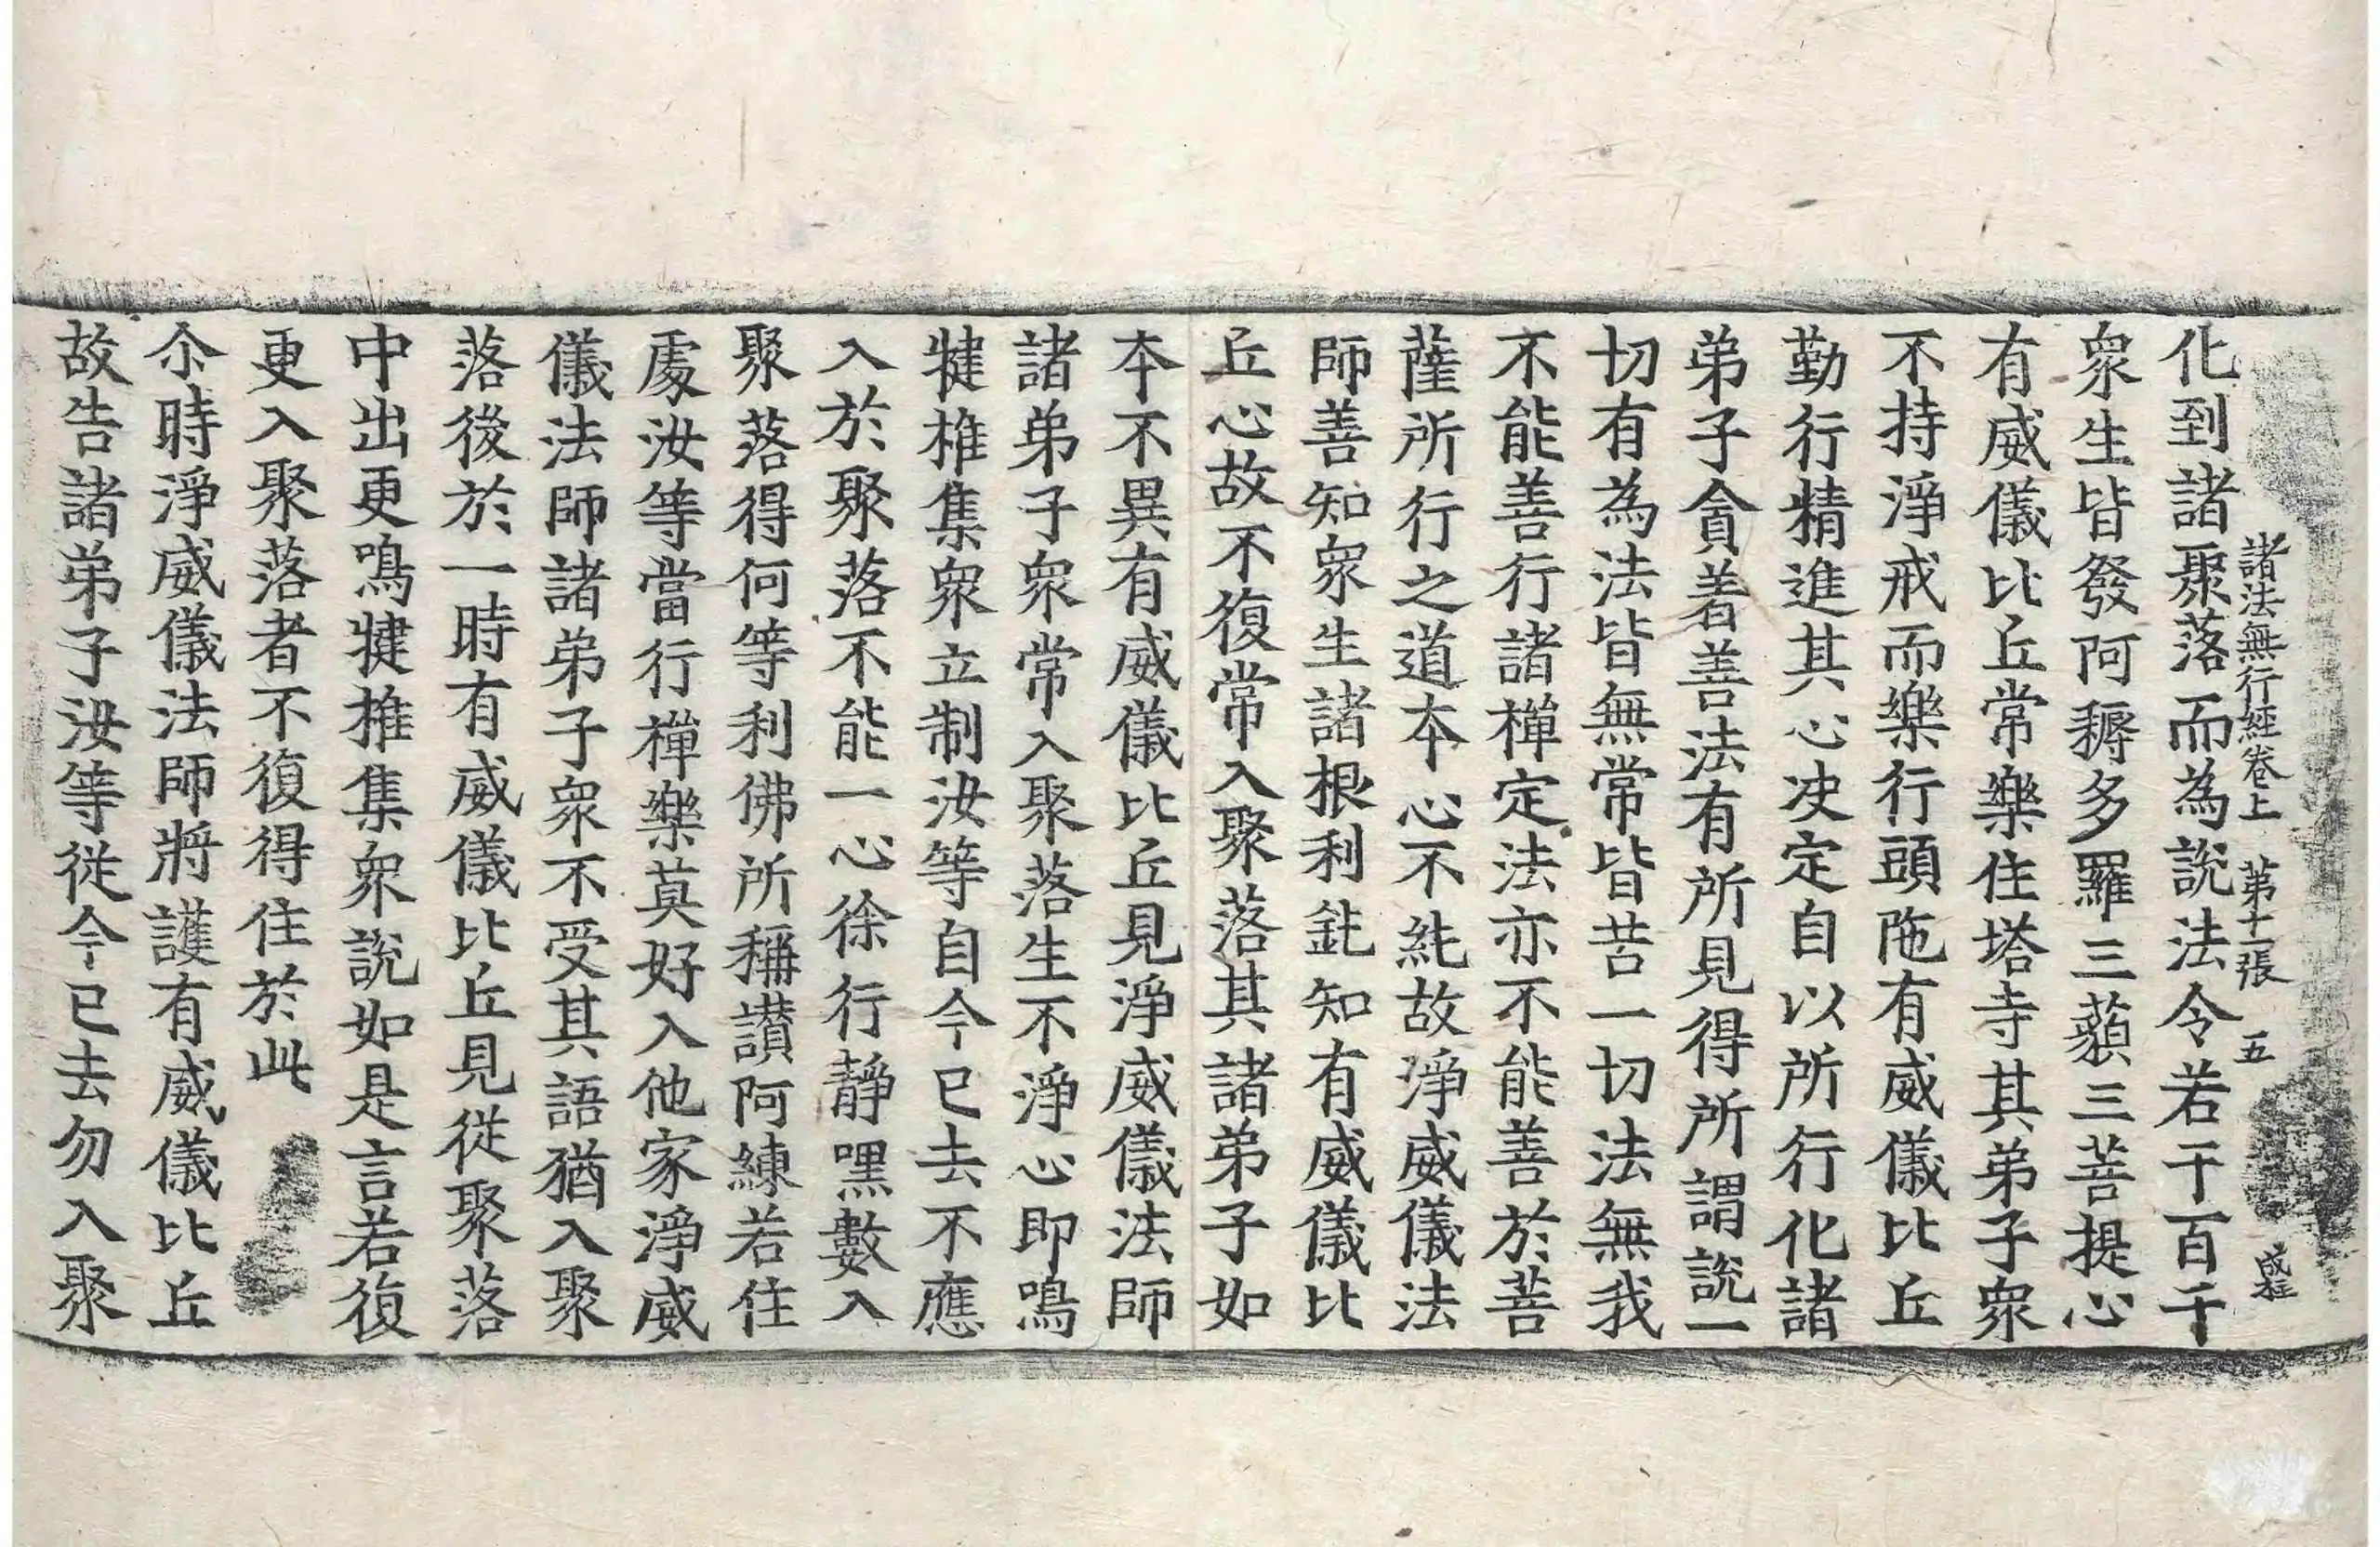 諸法無行經卷上 第十一張 五
化到諸聚落而為說法令若干百千
衆生皆發阿耨多羅三藐三菩提心
有威儀比丘常樂住塔寺其弟子衆
不持淨戒而樂行頭陁有威儀比丘
勤行精進其心决定自以所行化諸
弟子貪著善法有所見得所謂說一
切有為法皆無常皆苦一切法無我
不能善行諸禪定法亦不能善於菩
薩所行之道本心不純故淨威儀法
師善知衆生諸根利鈍知有威儀比
丘心故不復常入聚落其諸弟子如
本不異有威儀比丘見淨威儀法師
諸弟子衆常入聚落生不淨心即鳴
揵椎集衆立制汝等自今已去不應
入於聚落不能一心徐行靜嘿數入
聚落得何等利佛所稱讃阿練若住
處汝等當行禪樂莫好入他家淨威
儀法師諸弟子衆不受其語猶入聚
落後於一時有威儀比丘見從聚落
中出更鳴揵椎集衆說如是言若復
更入聚落者不復得住於此
尒時淨威儀法師將護有威儀比丘
故告諸弟子汝等從今已去勿入聚